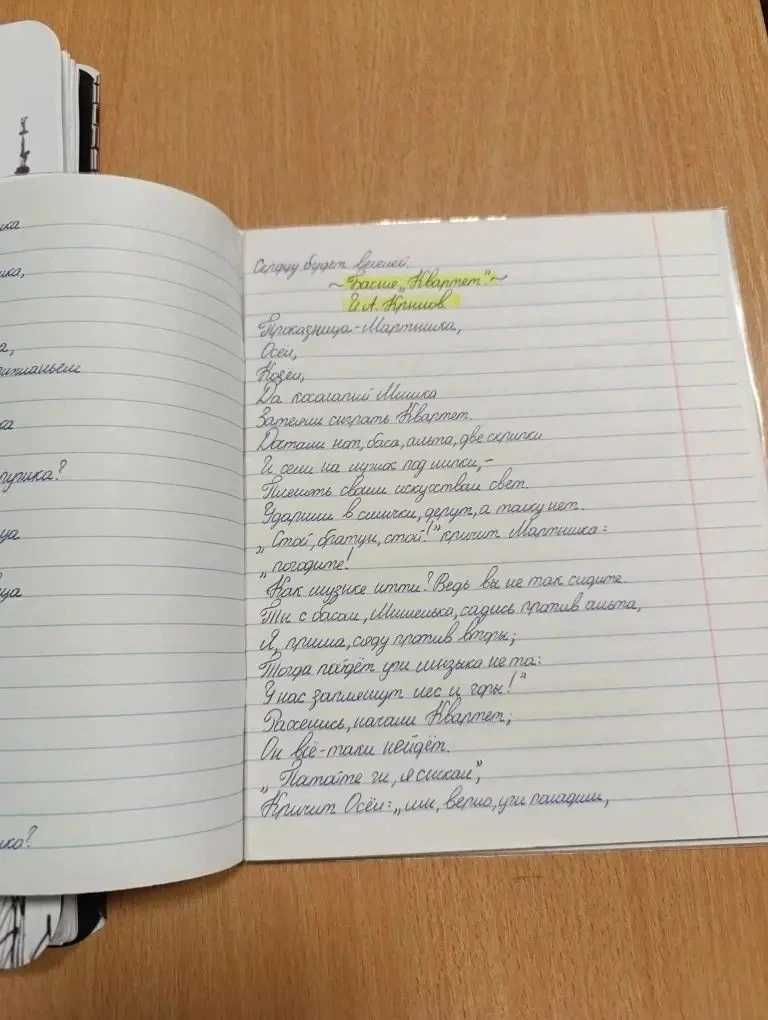 ика
ика,
а,
ка
пурика?
ца
ца
ко?
Сердцу будет веселей.
~ Басня „Квартет" ~
И.А. Крылов
Проказница-Мартышка,
Осёл,
Козёл,
Да косолапий Мишка
Затеяли сыграть Квартет.
Достали нот, баса, альта, две скрипки
И сели на лужок под липки,-
Пленять своим искусством свет.
Ударили в смычки, дерут, а толку нет.
„Стой, братцы, стой!" кричит Мартышка:
„погодите!
Как музыке итти? Ведь вы не так сидите.
Ты с басом, Мишенька, садись против альта,
Я, прима, сяду против вторы;
Тогда пойдёт уж музыка не та:
У нас запляшут лес и горы!"
Расселись, начали Квартет;
Он всё-таки нейдёт.
„ ж, я сыскал",
Кричит Осёл: „мы, верно, уж поладим,